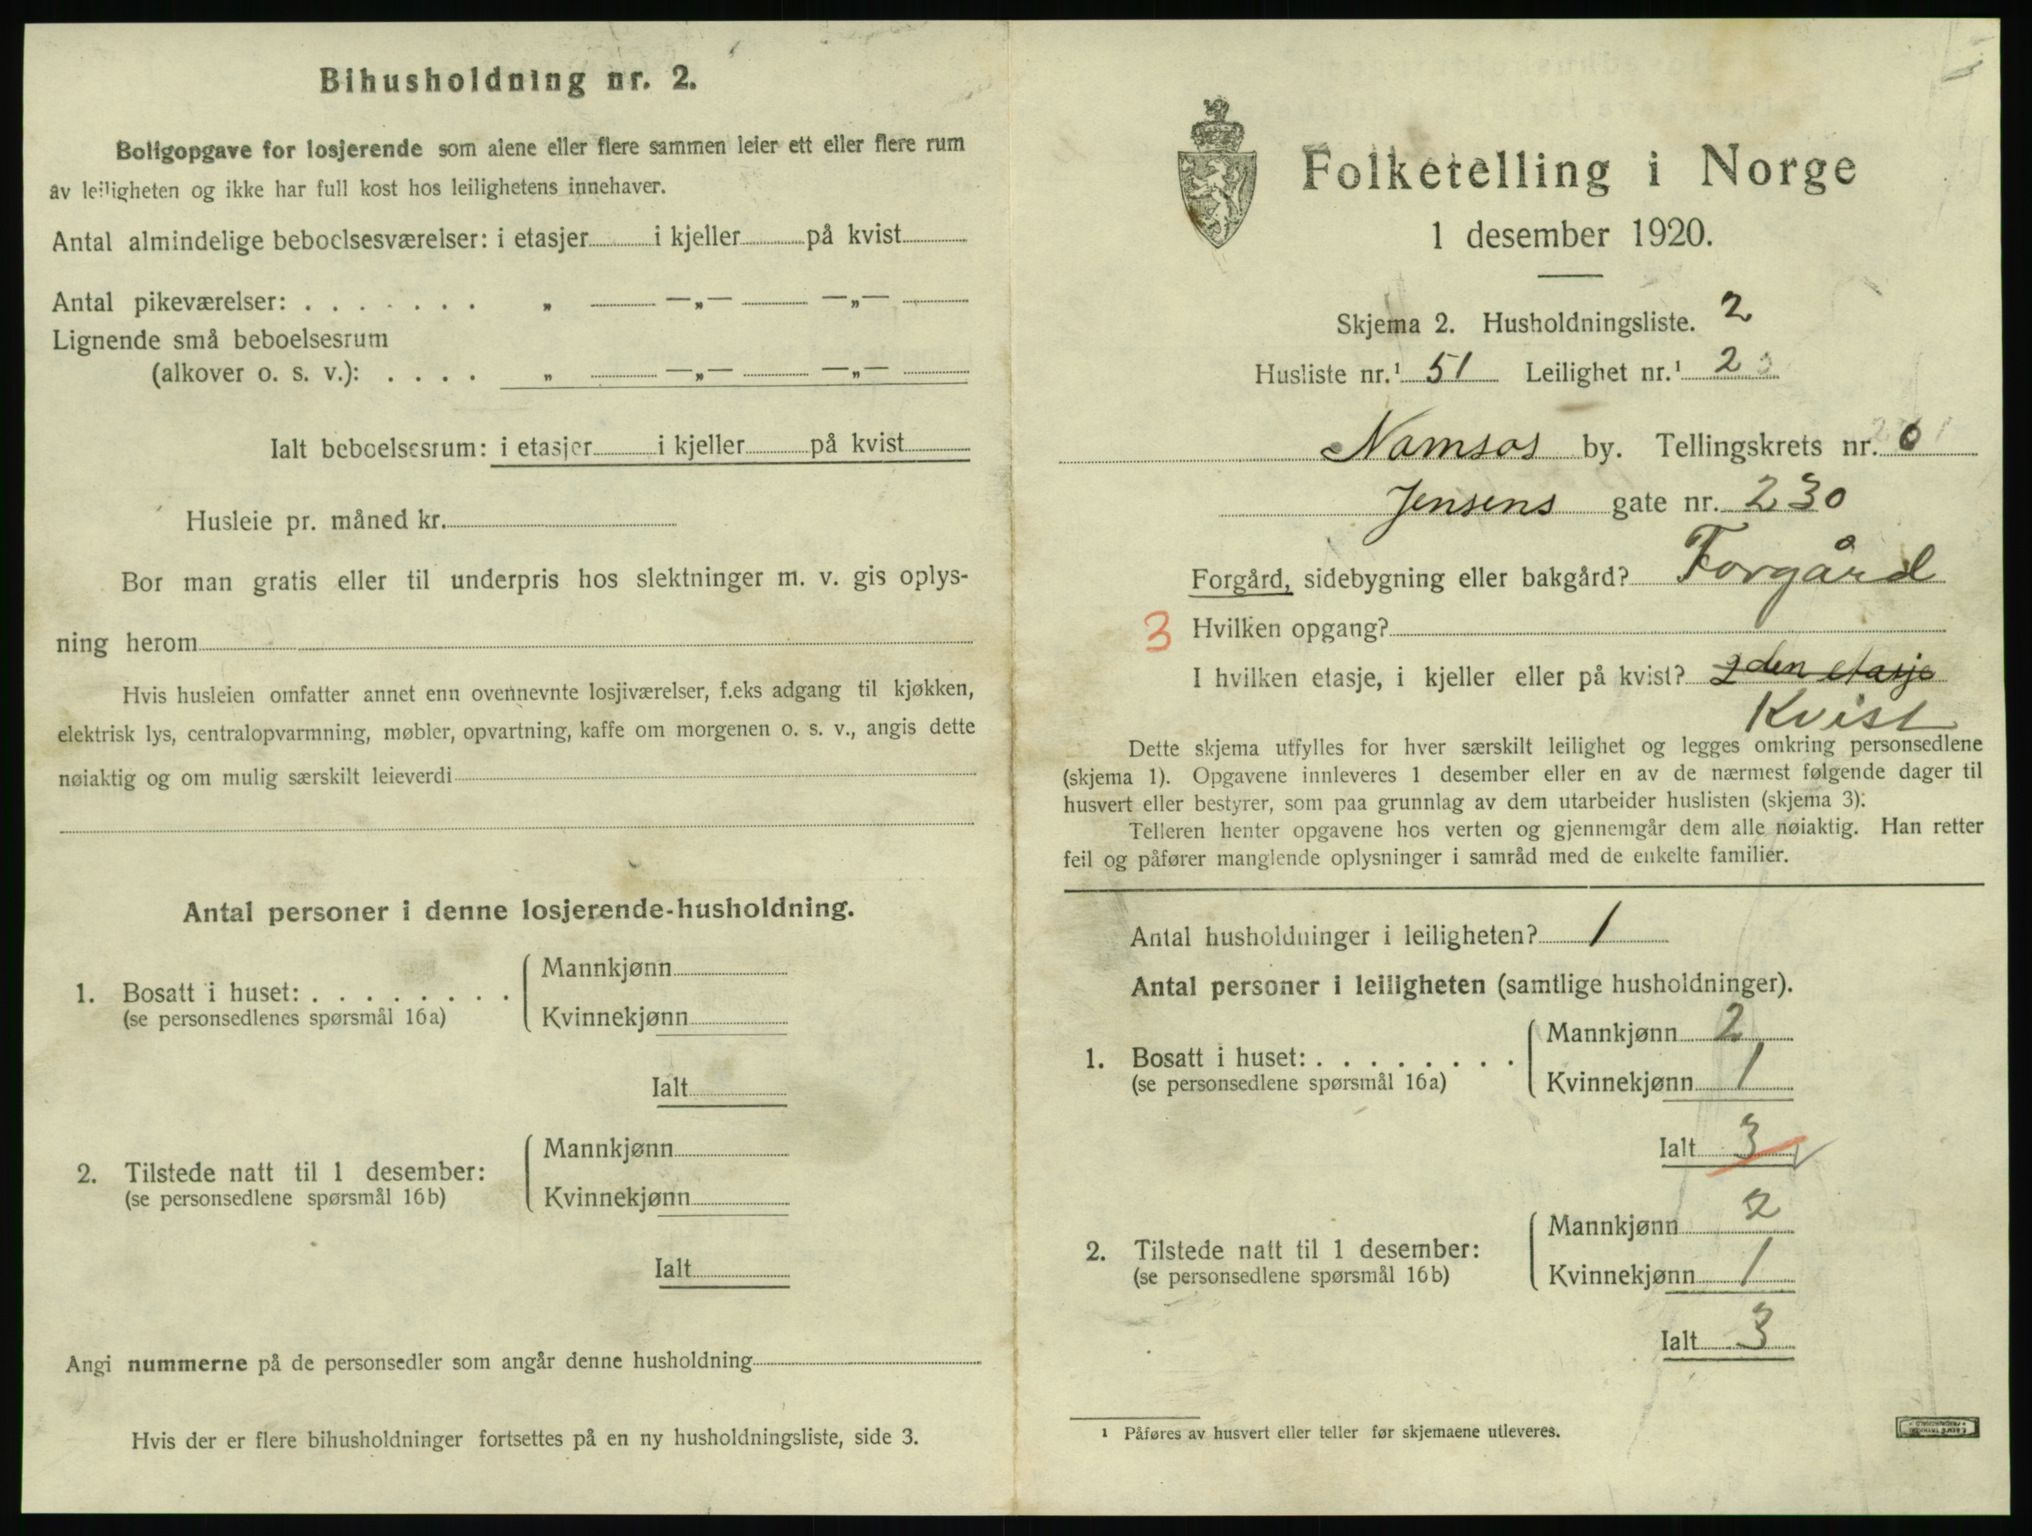 Bihusholdning nr. 2.
Boligopgave for losjerende som alene eller flere sammen leier ett eller flere rum
av leiligheten og ikke har full kost hos leilighetens innehaver.
Antal almindelige beboelsesværelser: i etasjer i kjeller på kvist
Antal pikeværelser: . . . . . . . „ —„— —„—
Lignende små beboelsesrum
(alkover o. s. v.): . . . . „ —„— —„—
Ialt beboelsesrum: i etasjer i kjeller på kvist
Husleie pr. måned kr.
Bor man gratis eller til underpris hos slektninger m. v. gis oplys-
ning herom
Hvis husleien omfatter annet enn ovennevnte losjiværelser, f.eks adgang til kjøkken,
elektrisk lys, centralopvarmning, møbler, opvartning, kaffe om morgenen o. s. v., angis dette
nøiaktig og om mulig særskilt leieverdi
Antal personer i denne losjerende-husholdning.
1. Bosatt i huset: . . . . . . . .
(se personsedlenes spørsmål 16a)
Mannkjønn
Kvinnekjønn
Ialt
2. Tilstede natt til 1 desember:
(se personsedlene spørsmål 16b)
Mannkjønn
Kvinnekjønn
Ialt
Angi nummerne på de personsedler som angår denne husholdning
Hvis der er flere bihusholdninger fortsettes på en ny husholdningsliste, side 3.
Folketelling i Norge
1 desember 1920.
Skjema 2. Husholdningsliste. 2
Husliste nr.¹ 51 Leilighet nr.¹ 2
Namsos by. Tellingskrets nr. 6
Jensens gate nr. 230
Forgård, sidebygning eller bakgård? Forgård
3 Hvilken opgang?
I hvilken etasje, i kjeller eller på kvist? 2den etasje
Kvist
Dette skjema utfylles for hver særskilt leilighet og legges omkring personsedlene
(skjema 1). Opgavene innleveres 1 desember eller en av de nærmest følgende dager til
husvert eller bestyrer, som paa grunnlag av dem utarbeider huslisten (skjema 3).
Telleren henter opgavene hos verten og gjennemgår dem alle nøiaktig. Han retter
feil og påfører manglende oplysninger i samråd med de enkelte familier.
Antal husholdninger i leiligheten? 1
Antal personer i leiligheten (samtlige husholdninger).
1. Bosatt i huset: . . . . . . . .
(se personsedlene spørsmål 16a)
Mannkjønn 2
Kvinnekjønn 1
Ialt 3
2. Tilstede natt til 1 desember:
(se personsedlene spørsmål 16b)
Mannkjønn 2
Kvinnekjønn 1
Ialt 3
¹ Påføres av husvert eller teller før skjemaene utleveres.